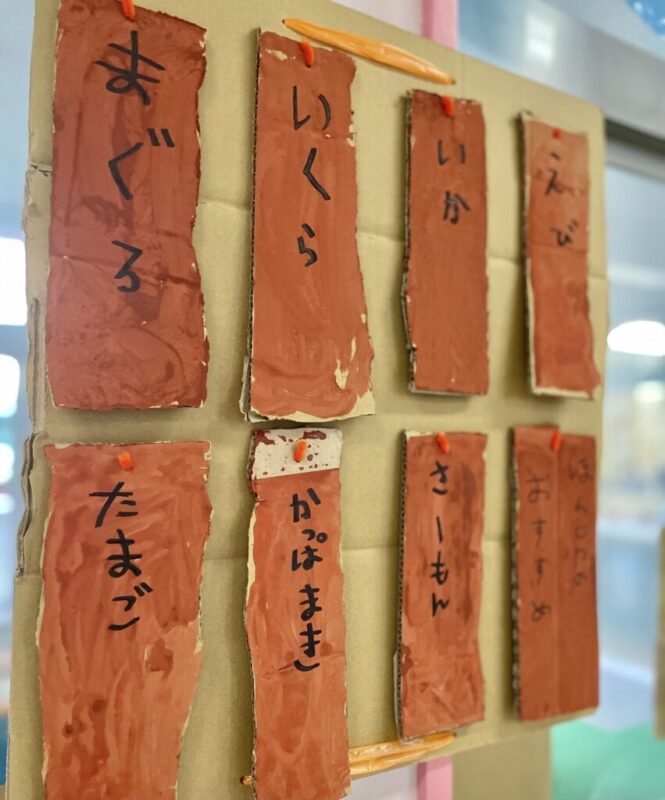 まぐろ
いくら
いか
えび
たまご
かっぱまき
さーもん
ほんじつの
おすすめ